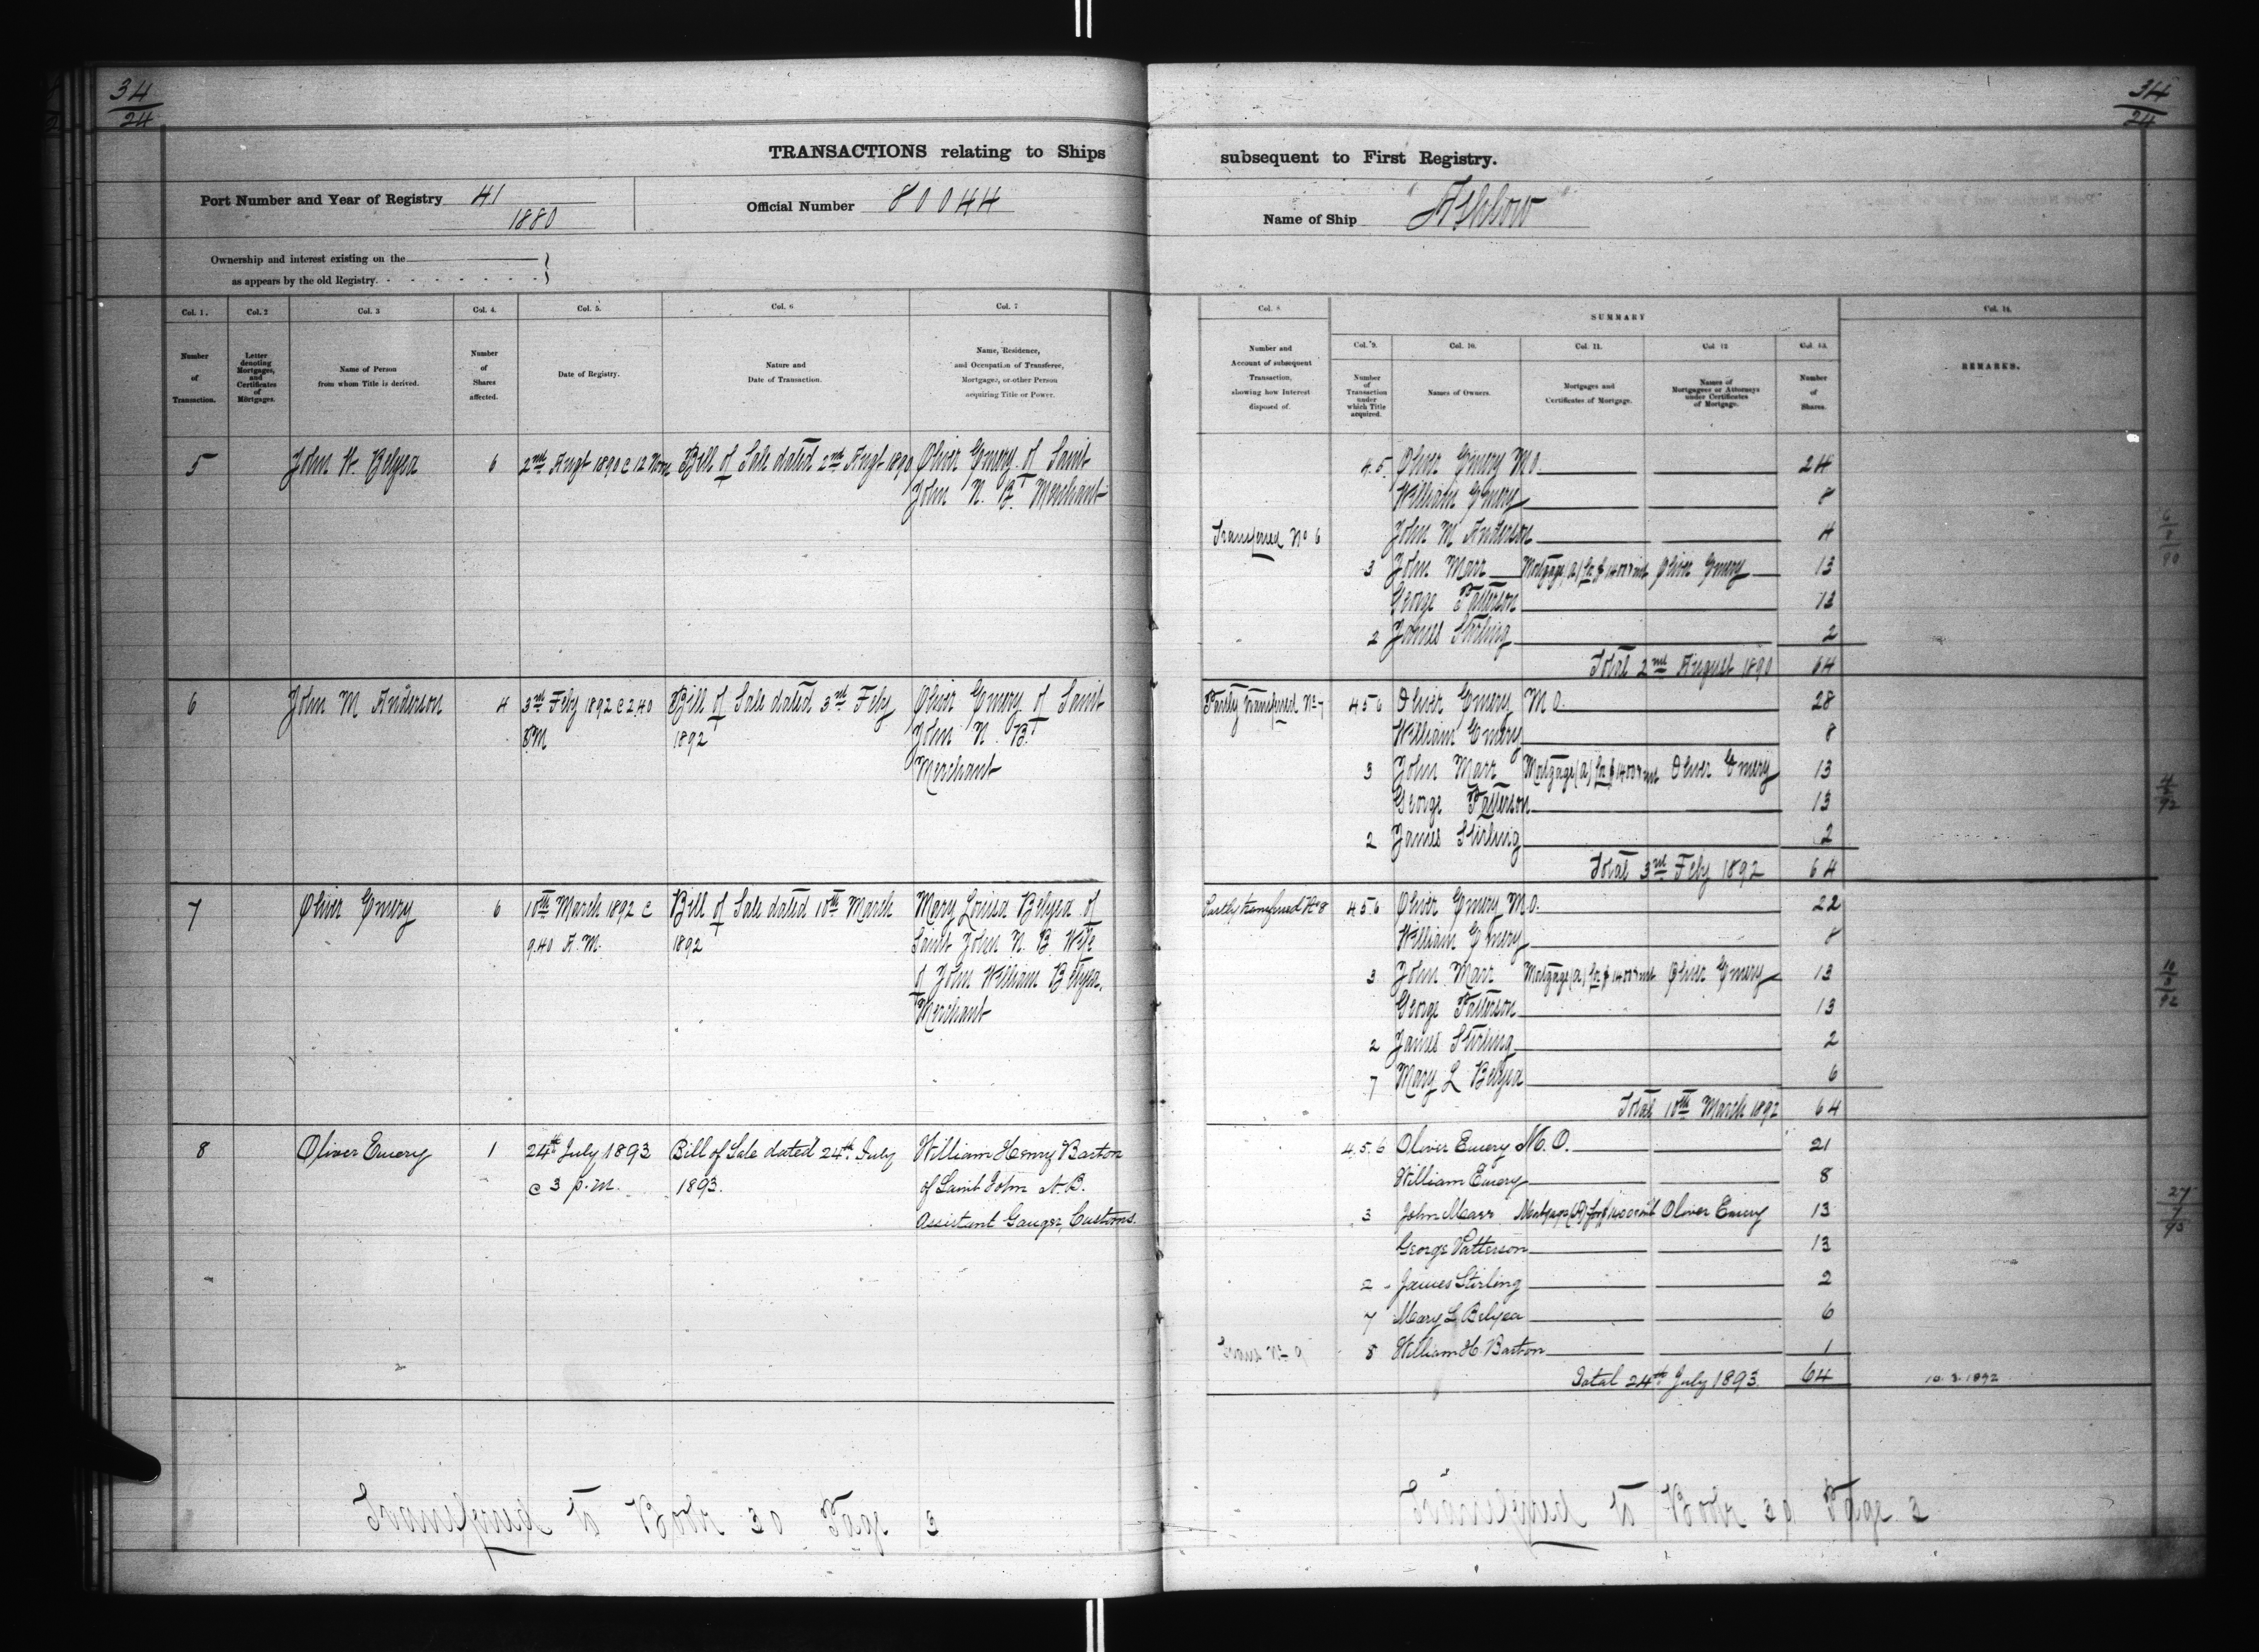 34
24
TRANSACTIONS relating to Ships
Port Number and Year of Registry 41
1880
Official Number 80044
Ownership and interest existing on the
as appears by the old Registry.
Col. 1.
Col. 2
Col. 3
Col. 4.
Col. 5.
Col. 6
Col. 7
Number
of
Transaction.
Letter
denoting
Mortgages,
and
Certificates
of
Mortgages.
Name of Person
from whom Title is derived.
Number
of
Shares
affected.
Date of Registry.
Nature and
Date of Transaction.
Name, Residence,
and Occupation of Transferee,
Mortgagee, or other Person
acquiring Title or Power.
5 John W. Belyea 6 2nd Augt 1890 @ 12 Noon Bill of Sale dated 2nd Augt 1890 Oliver Emery of Saint
John N. B. Merchant
6 John M Anderson 4 3rd Feby 1892 @ 2.40 Bill of Sale dated 3rd Feby Oliver Emery of Saint
PM 1892 John N. B.
Merchant
7 Oliver Emery 6 10th March 1892 @ Bill of Sale dated 10th March Mary Louisa Belyea of
9.40 A.M. 1892 Saint John N. B. Wife
of John William Belyea,
Merchant
8 Oliver Emery 1 24th July 1893 Bill of Sale dated 24th July William Henry Barton
@ 3 p.m. 1893. of Saint John N.B.
Assistant Gauger, Customs.
Transferred to Book 30 Page 3
34
24
subsequent to First Registry.
Name of Ship "Ashlow"
Col. 8
SUMMARY
Col. 14.
Col. 9.
Col. 10.
Col. 11.
Col. 12
Col. 13.
Number and
Account of subsequent
Transaction,
showing how Interest
disposed of.
Number
of
Transaction
under
which Title
acquired.
Names of Owners.
Mortgages and
Certificates of Mortgage.
Names of
Mortgagees or Attorneys
under Certificates
of Mortgage.
Number
of
Shares.
REMARKS.
4.5 Oliver Emery M O. 24
William Emery 8
Transferred No 6 John M Anderson 4
3 John Marr Mortgage (A) for $1400 & int Oliver Emery 13
George Patterson 13
2 James Stirling 2
Total 2nd August 1890 64
6
8
90
Partly transferred No 7 4 5 6 Oliver Emery M O. 28
William Emery 8
3 John Marr Mortgage (A) for $1400 & int Oliver Emery 13
George Patterson 13
2 James Stirling 2
Total 3rd Feby 1892 64
4
2
92
Partly transferred No 8 4 5 6 Oliver Emery M.O. 22
William Emery 8
3 John Marr Mortgage (A) for $1400 & int Oliver Emery 13
George Patterson 13
2 James Stirling 2
7 Mary L Belyea 6
Total 10th March 1892 64
10
3
92
4.5.6 Oliver Emery M. O. 21
William Emery 8
3 John Marr Mortgage (A) for $1400 & int Oliver Emery 13
George Patterson 13
2 James Stirling 2
7 Mary L Belyea 6
8 William H Barton 1
Total 24th July 1893. 64
10.3.1892
27
7
93
Transferred to Book 30 Page 3